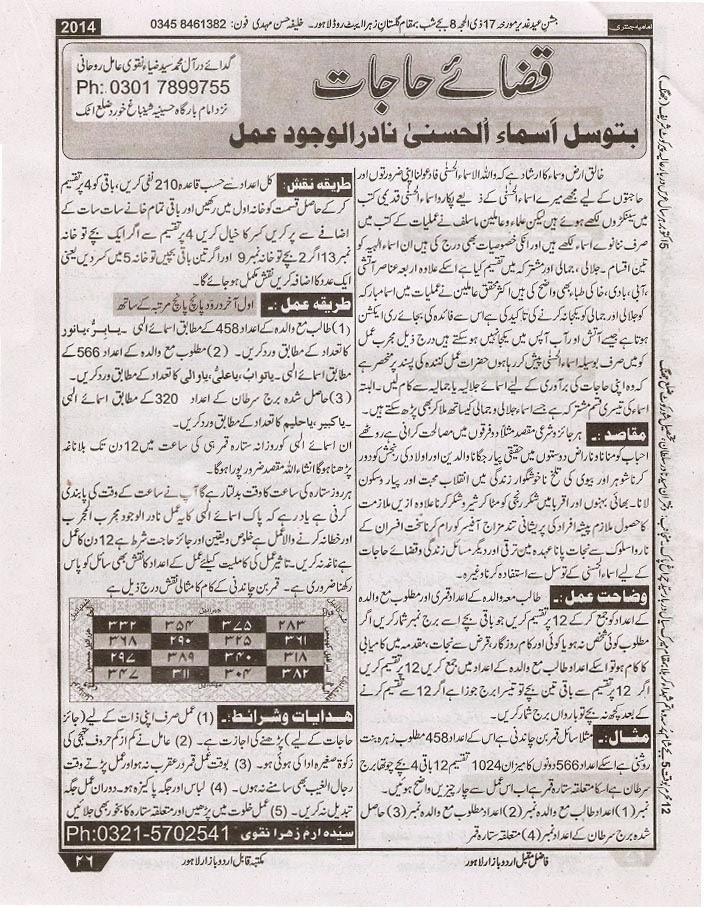 2014
جشن عید غدیر مورخہ 17 ذی الحجہ 8 بجے شب بمقام گلستان زہرا ایبٹ روڈ لاہور۔ خلیفہ حسن مہدی فون: 0345 8461382
امامیہ جنتری
گدائے در آل محمد سید ضیاء نقوی عامل روحانی
Ph: 0301 7899755
نزد امام بارگاہ حسینیہ شینباغ خورد ضلع اٹک
قضائے حاجات
بتوسل اسماء الحسنیٰ نادر الوجود عمل
خالق ارض و سماء کا ارشاد ہے کہ واللہ الاسماء الحسنیٰ فادعو لنا اپنی ضرورتوں اور
حاجتوں کے لیے مجھے میرے اسماء الحسنیٰ کے ذریعے پکارو اسماء الحسنیٰ قدیمی کتب
میں سینکڑوں لکھے ہوئے ہیں لیکن علماء و عاملین ماسلف نے عملیات کے کتب میں
صرف ننانوے اسماء لکھے ہیں اور انکی خصوصیات بھی درج کی ہیں ان اسماء الہیہ کو
تین اقسام۔ جلالی، جمالی اور مشترکہ میں تقسیم کیا ہے اسکے علاوہ اربعہ عناصر آتشی
،آبی، بادی، خاکی طبا‏ء بھی واضح کی ہیں اکثر محقق عاملین نے عملیات میں اسما مبارکہ
کو جلالی اور جمالی کو یکجا نہ کرنے کی تاکید کی ہے اس سے فائدہ کی بجائے ری ایکشن
ہوتا ہے جیسے آتش اور آب آپس میں یکجا نہیں ہو سکتے ہیں درج ذیل مجرب عمل
کو میں صرف بوسیلہ اسماء الحسنیٰ پیش کر رہا ہوں حضرات عمل کنندہ کی پسند پر منحصر ہے
کہ وہ اپنی حاجات کی برآوری کے لیے اسمائے جلالیہ یا جمالیہ سے کام لیں۔ البتہ
اسماء کی تیسری قسم مشترکہ ہے جسے اسماء جلالی و جمالی کیساتھ ملا کر بھی پڑھ سکتے ہیں۔
مقاصد:۔ ہر جائز و شرعی مقصد مثلاً دو فرقوں میں مصالحت کرانی ہے روٹھے
احباب کو منانا و ناراض دوستوں میں حقیقی پیار جگانا والدین اور اولاد کی رنجش کو دور
کرنا شوہر اور بیوی کی تلخ ناخوشگوار زندگی میں انقلاب محبت اور پیار و سکون
لانا۔ بھائی بہنوں اور اقربا شکر رنجی کو مٹا کر شیر و شکر کرنا علاوہ ازیں ملازمت
کا حصول ملازم پیشہ افراد کی پریشانی تند مزاج آفیسر کو رام کرنا سخت افسران کے
ناروا سلوک سے نجات پانا عہدہ میں ترقی اور دیگر مسائل زندگی و قضائے حاجات
کے لیے اسماء الحسنیٰ کے توسل سے استفادہ کرنا وغیرہ۔
وضاحت عمل:۔ طالب معہ والدہ کے اعداد قمری اور مطلوب مع والدہ
کے اعداد کو جمع کر کے 12 پر تقسیم کریں جو باقی بچے اسے برج شمار کریں اگر
مطلوب کوئی شخص نہ ہو یا کوئی اور کام روزگار، قرض سے نجات، مقدمہ میں کامیابی
کا کام ہو تو اسکے اعداد طالب مع والدہ کے اعداد میں جمع کر کے 12 پر تقسیم کریں
اگر 12 پر تقسیم سے باقی تین بچے تو تیسرا برج جوزا ہے اگر 12 سے تقسیم کرنے
کے بعد کچھ نہ بچے تو بارواں برج شمار کریں۔
مثال:۔ مثلاً سائل قمر بن چاندنی ہے اس کے اعداد 458 مطلوب زہرہ بنت
روشنی ہے اسکے اعداد 566 دونوں کا میزان 1024 تقسیم 12 باقی 4 بچے چوتھا برج
سرطان ہے اسکا متعلقہ ستارہ قمر ہے اب اس عمل سے چار چیزیں واضح ہوئیں۔
نمبر (1) اعداد طالب مع والدہ نمبر (2) اعداد مطلوب مع والدہ نمبر (3) حاصل
شدہ برج سرطان کے اعداد نمبر (4) متعلقہ ستارہ قمر
طریقہ نقش:۔ کل اعداد سے حسب قاعدہ 210 نفی کریں، باقی کو 4 پر تقسیم
کر کے حاصل قسمت کو خانہ اول میں رکھیں اور باقی تمام خانے سات سات کے
اضافے سے پر کریں کسر کا خیال کریں 4 پر تقسیم سے اگر ایک بچے تو خانہ
نمبر 13 اگر 2 بچے تو خانہ نمبر 9 اور اگر تین باقی بچیں تو خانہ 5 میں کسر دیں یعنی
ایک عدد کا اضافہ کریں نقش مکمل ہو جائے گا۔
طریقہ عمل:۔ اول آخر درود پانچ پانچ مرتبہ کے ساتھ
(1) طالب مع والدہ کے اعداد 458 کے مطابق اسمائے الہی۔ یابرُ، یانور
کا تعداد کے مطابق ورد کریں۔ (2) مطلوب مع والدہ کے اعداد 566 کے
مطابق اسمائے الہی۔ یا تواب، یا علیُ، یا والی کا تعداد کے مطابق ورد کریں۔
(3) حاصل شدہ برج سرطان کے اعداد 320 کے مطابق اسمائے الہی
۔یا کبیر، یا حلیم کا تعداد کے مطابق ورد کریں۔
ان اسمائے الہی کو روزانہ ستارہ قمر ہی کی ساعت میں 12 دن تک بلاناغہ
پڑھنا ہوگا انشاء اللہ مقصد ضرور پورا ہوگا۔
ہر روز ستارہ کی ساعت کا وقت بدلتا رہے گا آپ نے ساعت کے وقت کی پابندی
کرنی ہے یاد رہے کہ پاک اسمائے الہی کا یہ عمل نادر الوجود مجرب المجرب
اور خطا نہ کرنے والا عمل ہے خلوص و یقین اور جائز حاجت شرط ہے 12 دن کا عمل
ہے ناغہ نہ کریں۔ تاثیر عمل کی کاملیت کیلئے عمل کے اعداد کا نقش بھی سائل کو پاس
رکھنا ضروری ہے۔ قمر بن چاندنی کے کام کا مثالی نقش درج ذیل ہے
۲۸۳ ۳۷۵ ۳۵۴ ۳۳۲
۳۶۱ ۳۲۵ ۲۹۰ ۳۶۸
۳۱۸ ۳۴۰ ۳۸۹ ۲۹۷
۳۸۲ ۳۰۴ ۳۱۱ ۳۴۷
ہدایات و شرائط:۔ (1) عمل صرف اپنی ذات کے لیے (جائز
حاجات کے لیے) پڑھنے کی اجازت ہے۔ (2) عامل نے کم از کم حروف تہجی کی
زکوۃ صغیرہ ادا کی ہوئی ہو۔ (3) بوقت عمل قمر در عقرب نہ ہو اور عمل پڑھتے وقت
رجال الغیب بھی سامنے نہ ہوں۔ (4) لباس اور جگہ پاکیزہ ہو۔ دوران عمل جگہ
تبدیل نہ کریں۔ (5) عمل خلوت میں پڑھیں اور متعلقہ ستارہ کا بخور بھی جلائیں
سیدہ ارم زہرا نقوی Ph:0321-5702541
فاضل مقبل اردو بازار لاہور
مکتبہ قابل اردو بازار لاہور
۲۶